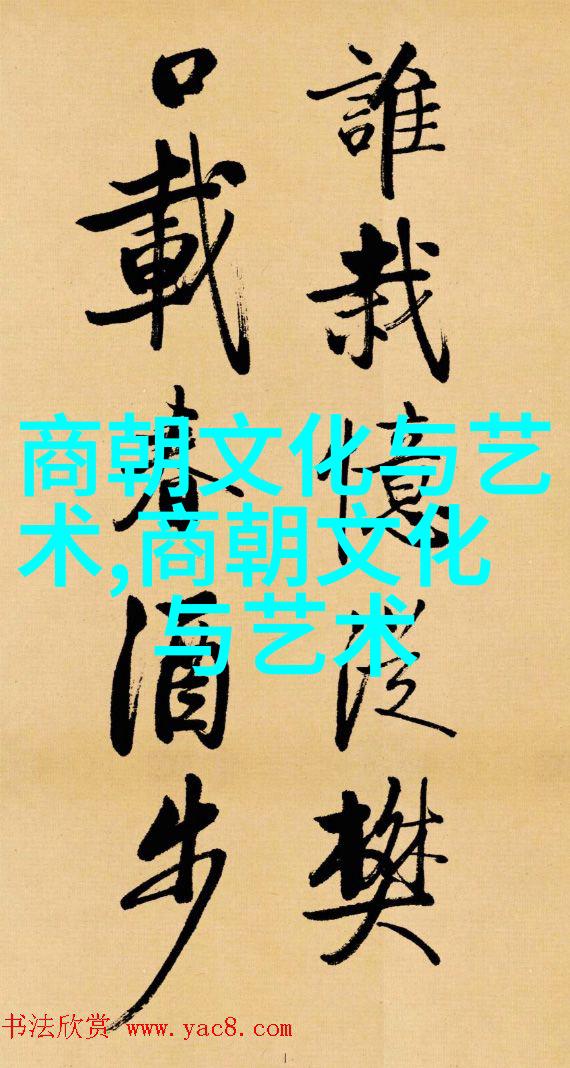 誰栽憶從樊
口載春酒步
商朝文化与艺
术,商朝文化
与艺术
书法欣赏 www.yac8.com